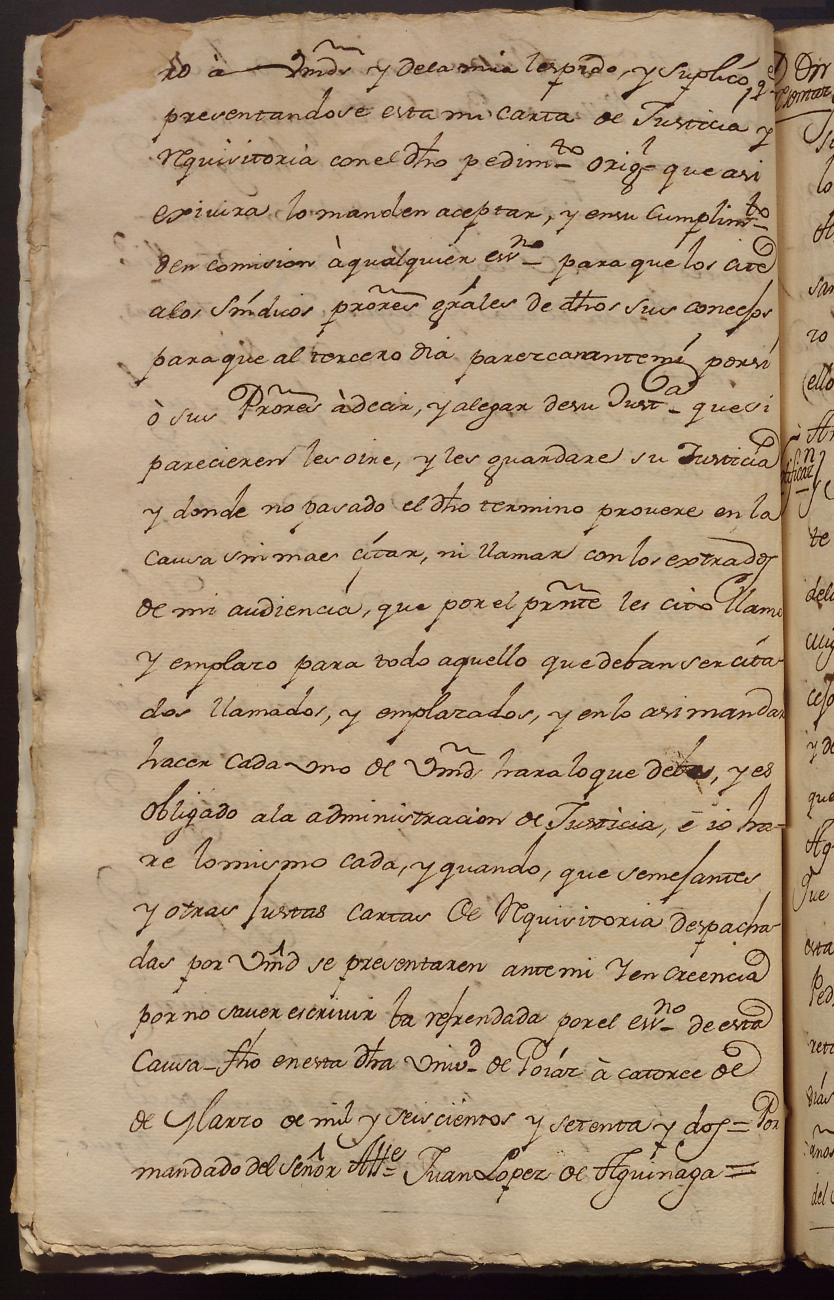 ro à Vmds y dela mia les pido, y suplico, q̃
presentandose esta mi carta de Justicia y
Rquisitoria con el dho pedimto. origl que asi
exivira lo manden aceptar, y en su cumplimto.
den comision à qualquier essno. para que los cite
a los Síndicos prôres grâles de dhos sus concejos
para que al tercero dia parezcan ante mi por si
ò sus Prôres à decir, y alegar de su Justa. que si
parecieren les oire, y les guardare su Justicia
y donde no pasado el dho termino provere en la
causa sin maes citar, ni llamar con los extrados
de mi audiencia, que por el presnte les cito llamo
y emplazo para todo aquello que deban ser cita-
dos llamados, y emplazados, y en lo asi mandar
hacer cada uno de Vmd hara lo que debe, y es
obligado a la administracion de Justicia, è io ha-
re lo mismo cada, y quando, que semejantes
y otras Justas cartas de Rquisitoria despacha-
das por Vmd se presentaren ante mi y en creencia
por no saver escrivir ba refrendada por el essno. de esta
Causa fho en esta dha Univd. de Goiaz à catorce de
de Marzo de mil y seiscientos y setenta y dos = Por
mandado del Señor Alle. Juan Lopez de Aguinaga =